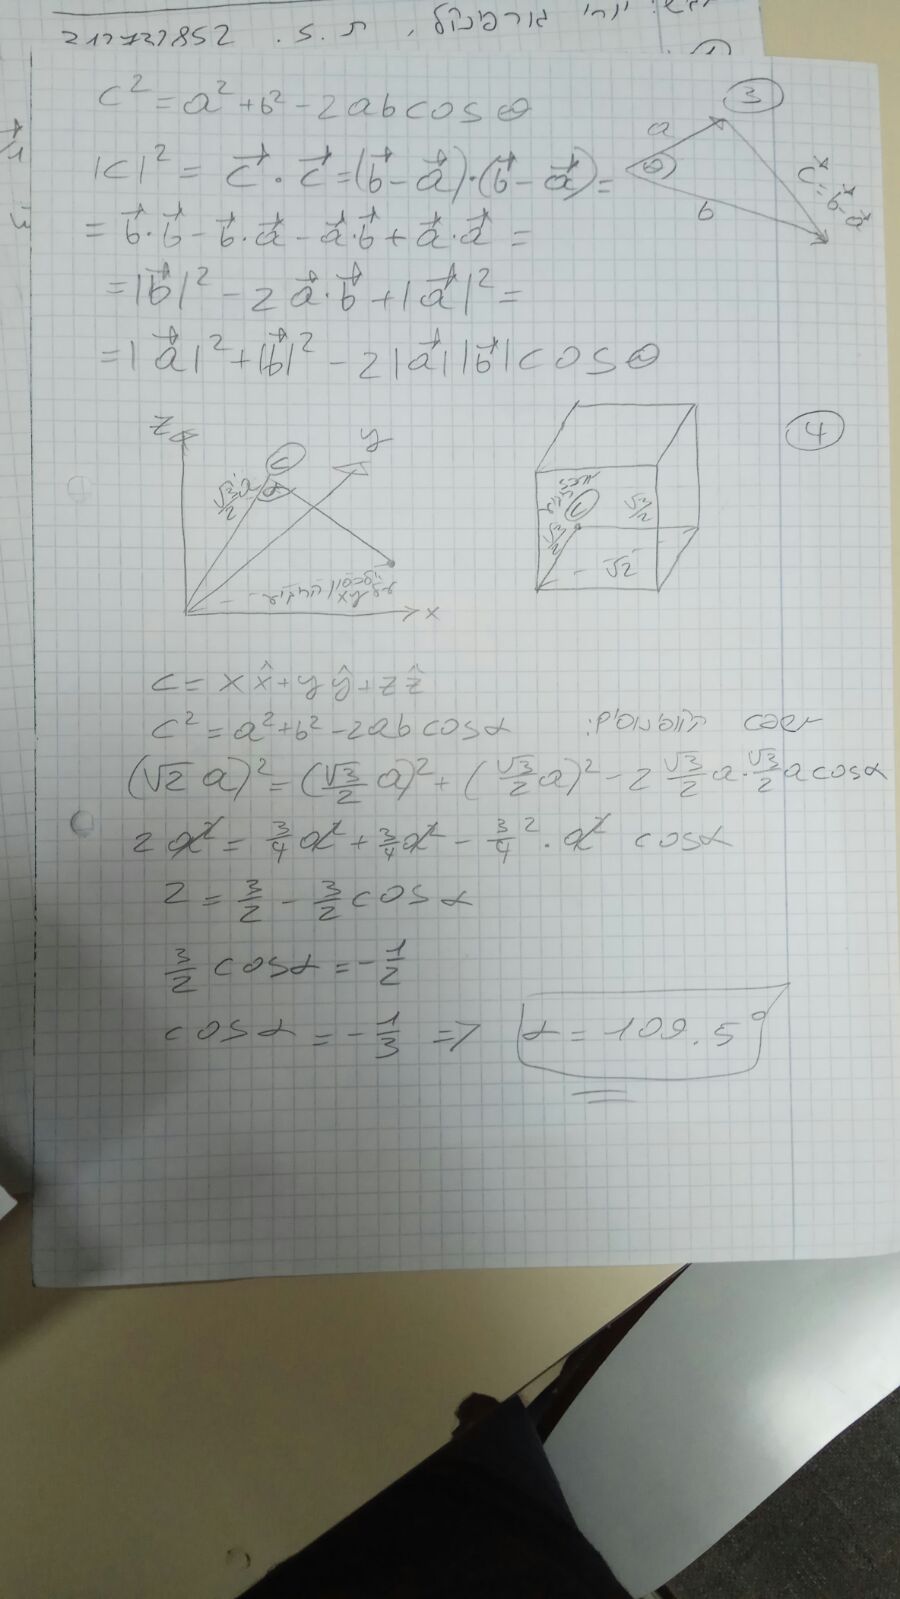 ת.ס. 217727852
③
c² = a² + b² - 2ab cos θ
|c|² = c⃗ · c⃗ = (b⃗ - a⃗)·(b⃗ - a⃗) =
= b⃗·b⃗ - b⃗·a⃗ - a⃗·b⃗ + a⃗·a⃗ =
= |b⃗|² - 2a⃗·b⃗ + |a⃗|² =
= |a⃗|² + |b⃗|² - 2|a⃗||b⃗| cos θ
a
θ
b
c⃗ = b⃗ - a⃗
④
z
y
x
C
√3/2 a
α
C
√3/2
√3/2
√2
c = x x̂ + y ŷ + z ẑ
c² = a² + b² - 2ab cos α
(√2 a)² = (√3/2 a)² + (√3/2 a)² - 2 √3/2 a · √3/2 a cos α
2a² = 3/4 a² + 3/4 a² - 3/4 2 · a² cos α
2 = 3/2 - 3/2 cos α
3/2 cos α = -1/2
cos α = -1/3 => α = 109.5°